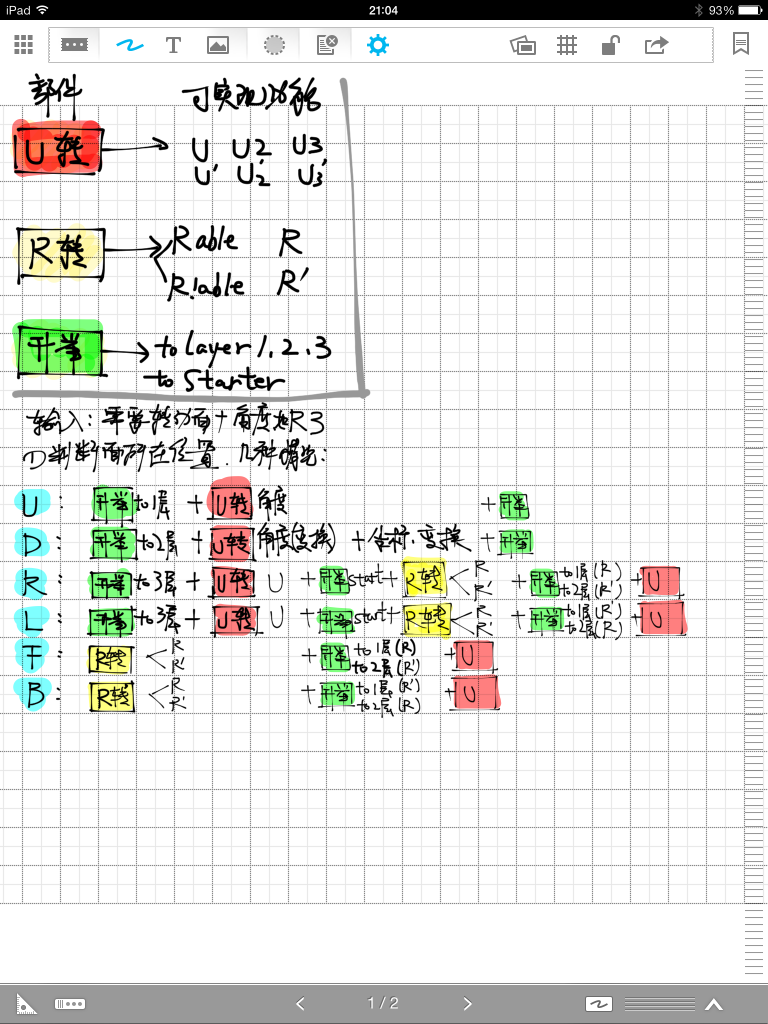 iPad 21:04 93%
T
部件 可实现功能
U转 U U2 U3
U' U2' U3'
R转 Rable R
R'able R'
升当 to Layer 1.2.3
to Starter
输入: 需要转动面+角度 如R3
①判断面所在位置.几种情况:
U: 升当 to1层 + U转 角度 +升当
D: 升当 to2层 + U转 角度(变换) + 坐标.变换 +升当
R: 升当 to3层 + U转 U +升当 start+ R转 R R' +升当 to1层(R) to2层(R') + U
L: 升当 to3层 + U转 U +升当 start+ R转 R R' +升当 to1层(R') to2层(R) + U
F: R转 R R' +升当 to1层(R) to2层(R') + U
B: R转 R R' +升当 to1层(R') to2层(R) + U
1 / 2